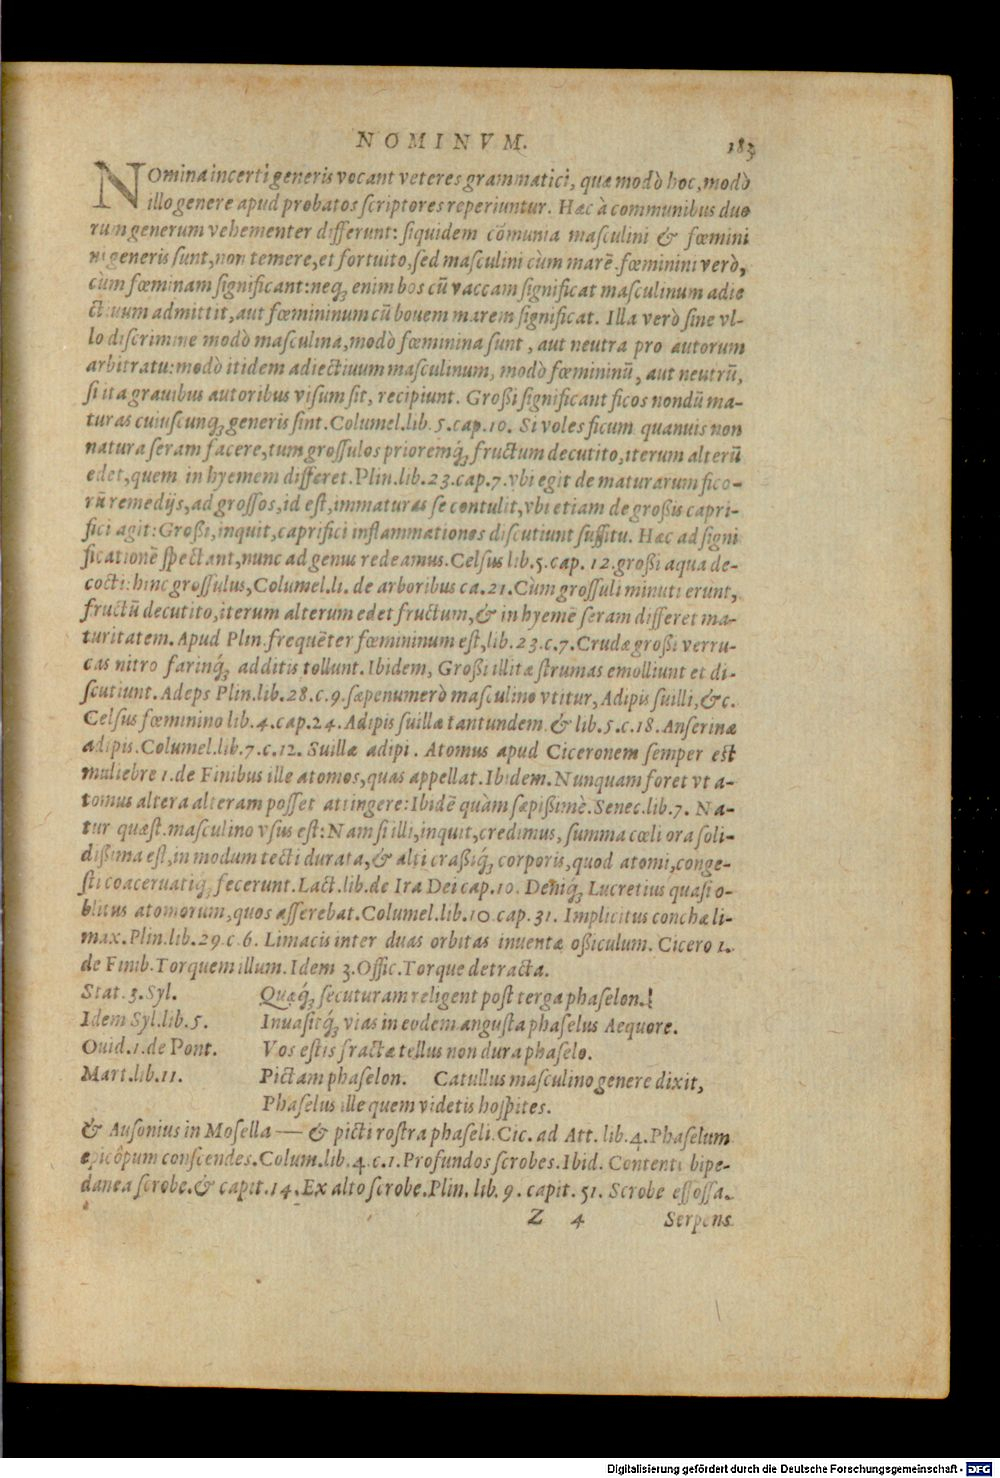 NOMINVM. 183
NOmina incerti generis vocant veteres grammatici, quæ modò hoc, modò
illo genere apud probatos scriptores reperiuntur. Hæc à communibus duo
rum generum vehementer differunt: siquidem cōmunia masculini & fœmini
ni generis sunt, non temere, et fortuito, sed masculini cùm marē fœminini verò,
cùm fœminam significant: neq; enim bos cū vaccam significat masculinum adie
ctiuum admittit, aut fœmininum cū bouem marem significat. Illa verò sine vl-
lo discrimine modò masculina, modò fœminina sunt, aut neutra pro autorum
arbitratu: modò itidem adiectiuum masculinum, modò fœmininū, aut neutrū,
si ita grauibus autoribus visum sit, recipiunt. Großi significant ficos nondū ma-
turas cuiuscunq; generis sint. Columel. lib. 5. cap. 10. Si voles ficum quanuis non
natura seram facere, tum grossulos prioremq́; fructum decutito, iterum alterū
edet, quem in hyemem differet. Plin. lib. 23. cap. 7. vbi egit de maturarum fico-
rū remedijs, ad grossos, id est, immaturas se contulit, vbi etiam de großis capri-
fici agit: Großi, inquit, caprifici inflammationes discutiunt suffitu. Hæc ad signi
ficationē spectant, nunc ad genus redeamus. Celsus lib. 5. cap. 12. großi aqua de-
cocti: hinc grossulus, Columel. li. de arboribus ca. 21. Cùm grossuli minuti erunt,
fructū decutito, iterum alterum edet fructum, & in hyemē seram differet ma-
turitatem. Apud Plin. frequēter fœmininum est, lib. 23. c. 7. Crudæ großi verru-
cas nitro farinq́; additis tollunt. Ibidem, Großi illitæ strumas emolliunt et di-
scutiunt. Adeps Plin. lib. 28. c. 9. sæpenumerò masculino vtitur, Adipis suilli, &c.
Celsus fœminino lib. 4. cap. 24. Adipis suillæ tantundem & lib. 5. c. 18. Anserinæ
adipis. Columel. lib. 7. c. 12. Suillæ adipi. Atomus apud Ciceronem semper est
muliebre 1. de Finibus ille atomos, quas appellat. Ibidem. Nunquam foret vt a-
tomus altera alteram posset attingere: Ibidē quàm sæpißimè. Senec. lib. 7. Na-
tur quæst. masculino vsus est: Nam si illi, inquit, credimus, summa cœli ora soli-
dißima est, in modum tecti durata, & alti craßiq́; corporis, quod atomi, conge-
sti coaceruatiq; fecerunt. Lact. lib. de Ira Dei cap. 10. Deniq; Lucretius quasi o-
blitus atomorum, quos asserebat. Columel. lib. 10. cap. 31. Implicitus conchæ li-
max. Plin. lib. 29. c. 6. Limacis inter duas orbitas inuentæ oßiculum. Cicero 1.
de Finib. Torquem illum. Idem 3. Offic. Torque detracta.
Stat. 3. Syl. Quæq́; secuturam religent post terga phaselon.
Idem Syl. lib. 5. Inuasitq́; vias in eodem angusta phaselus Aequore.
Ouid. 1. de Pont. Vos estis fractæ tellus non dura phaselo.
Mart. lib. 11. Pictam phaselon. Catullus masculino genere dixit,
Phaselus ille quem videtis hospites.
& Ausonius in Mosella — & picti rostra phaseli. Cic. ad Att. lib. 4. Phaselum
epicôpum conscendes. Colum. lib. 4. c. 1. Profundos scrobes. Ibid. Contenti bipe-
danea scrobe. & capit. 14. Ex alto scrobe. Plin. lib. 9. capit. 51. Scrobe effossa.
Z 4 Serpens
Digitalisierung gefördert durch die Deutsche Forschungsgemeinschaft - DFG